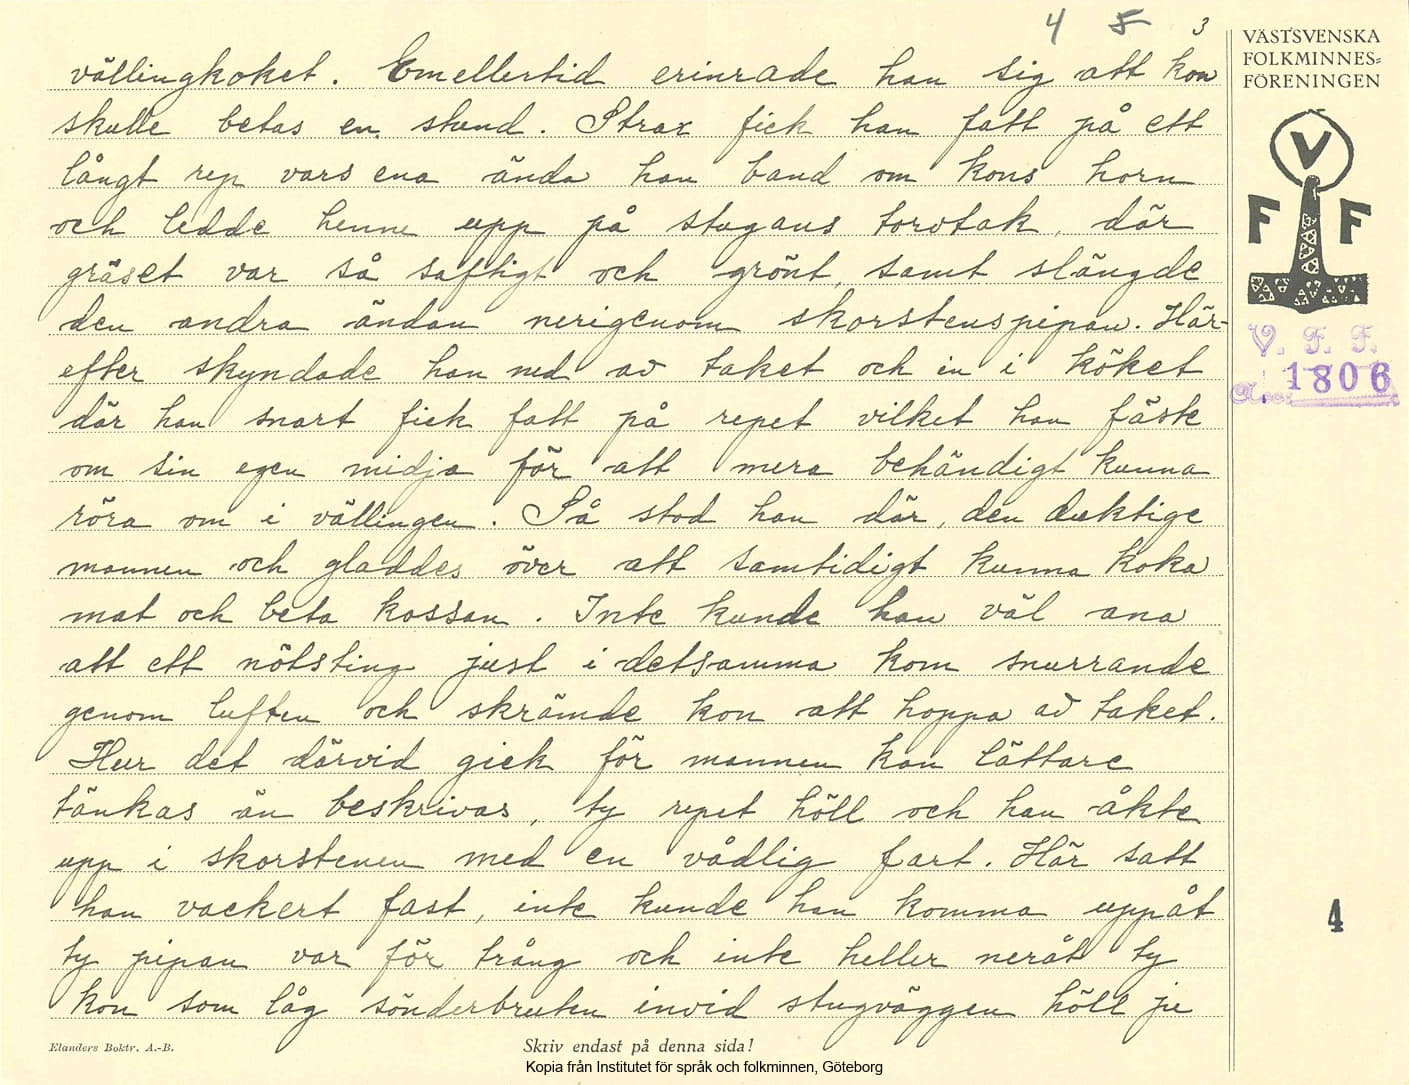 4 5 3
vällingkoket. Emellertid erinrade han sig att kon
skulle betas en stund. Strax fick han fatt på ett
långt rep vars ena ända han band om kons horn
och ledde henne upp på stugans torvtak, där
gräset var så saftigt och grönt, samt slängde
den andra ändan nerigenom skorstenspipan. Här-
efter skyndade han ned av taket och in i köket
där han snart fick fatt på repet vilket han fäste
om sin egen midja för att mera behändigt kunna
röra om i vällingen. Så stod han där, den duktige
mannen och gladdes över att samtidigt kunna koka
mat och beta kossan. Inte kunde han väl ana
att ett nötsting just i detsamma kom snurrande
genom luften och skrämde kon att hoppa av taket.
Hur det därvid gick för mannen kan lättare
tänkas än beskrivas, ty repet höll och han åkte
upp i skorstenen med en vådlig fart. Här satt
han vackert fast, inte kunde han komma uppåt
ty pipan var för trång och inte heller neråt ty
kon som låg sönderbruten invid stugväggen höll ju
VÄSTSVENSKA
FOLKMINNES-
FÖRENINGEN
V
F F
V. F. F.
Acc. 1806
4
Elanders Boktr. A.-B.
Skriv endast på denna sida!
Kopia från Institutet för språk och folkminnen, Göteborg